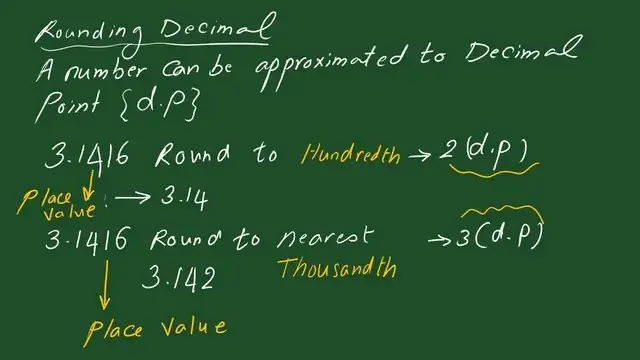 Rounding Decimal
A number can be approximated to Decimal
Point {d.p}
3.1416 Round to Hundredth → 2(d.p)
Place value → 3.14
3.1416 Round to nearest → 3(d.p)
3.142 Thousandth
Place Value